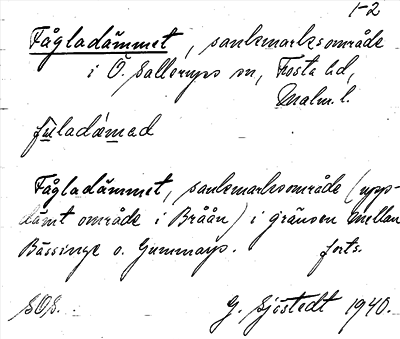 1-2
Fågladämmet, sankmarksområde
i Ö. Sallerups sn, Frosta hd,
Malm. l.
fuladámad
Fågladämmet, sankmarksområde (upp-
dämt område i Bråån) i gränsen mellan
Bässinge o. Gummarp. forts.
SOS. G. Sjöstedt 1940.